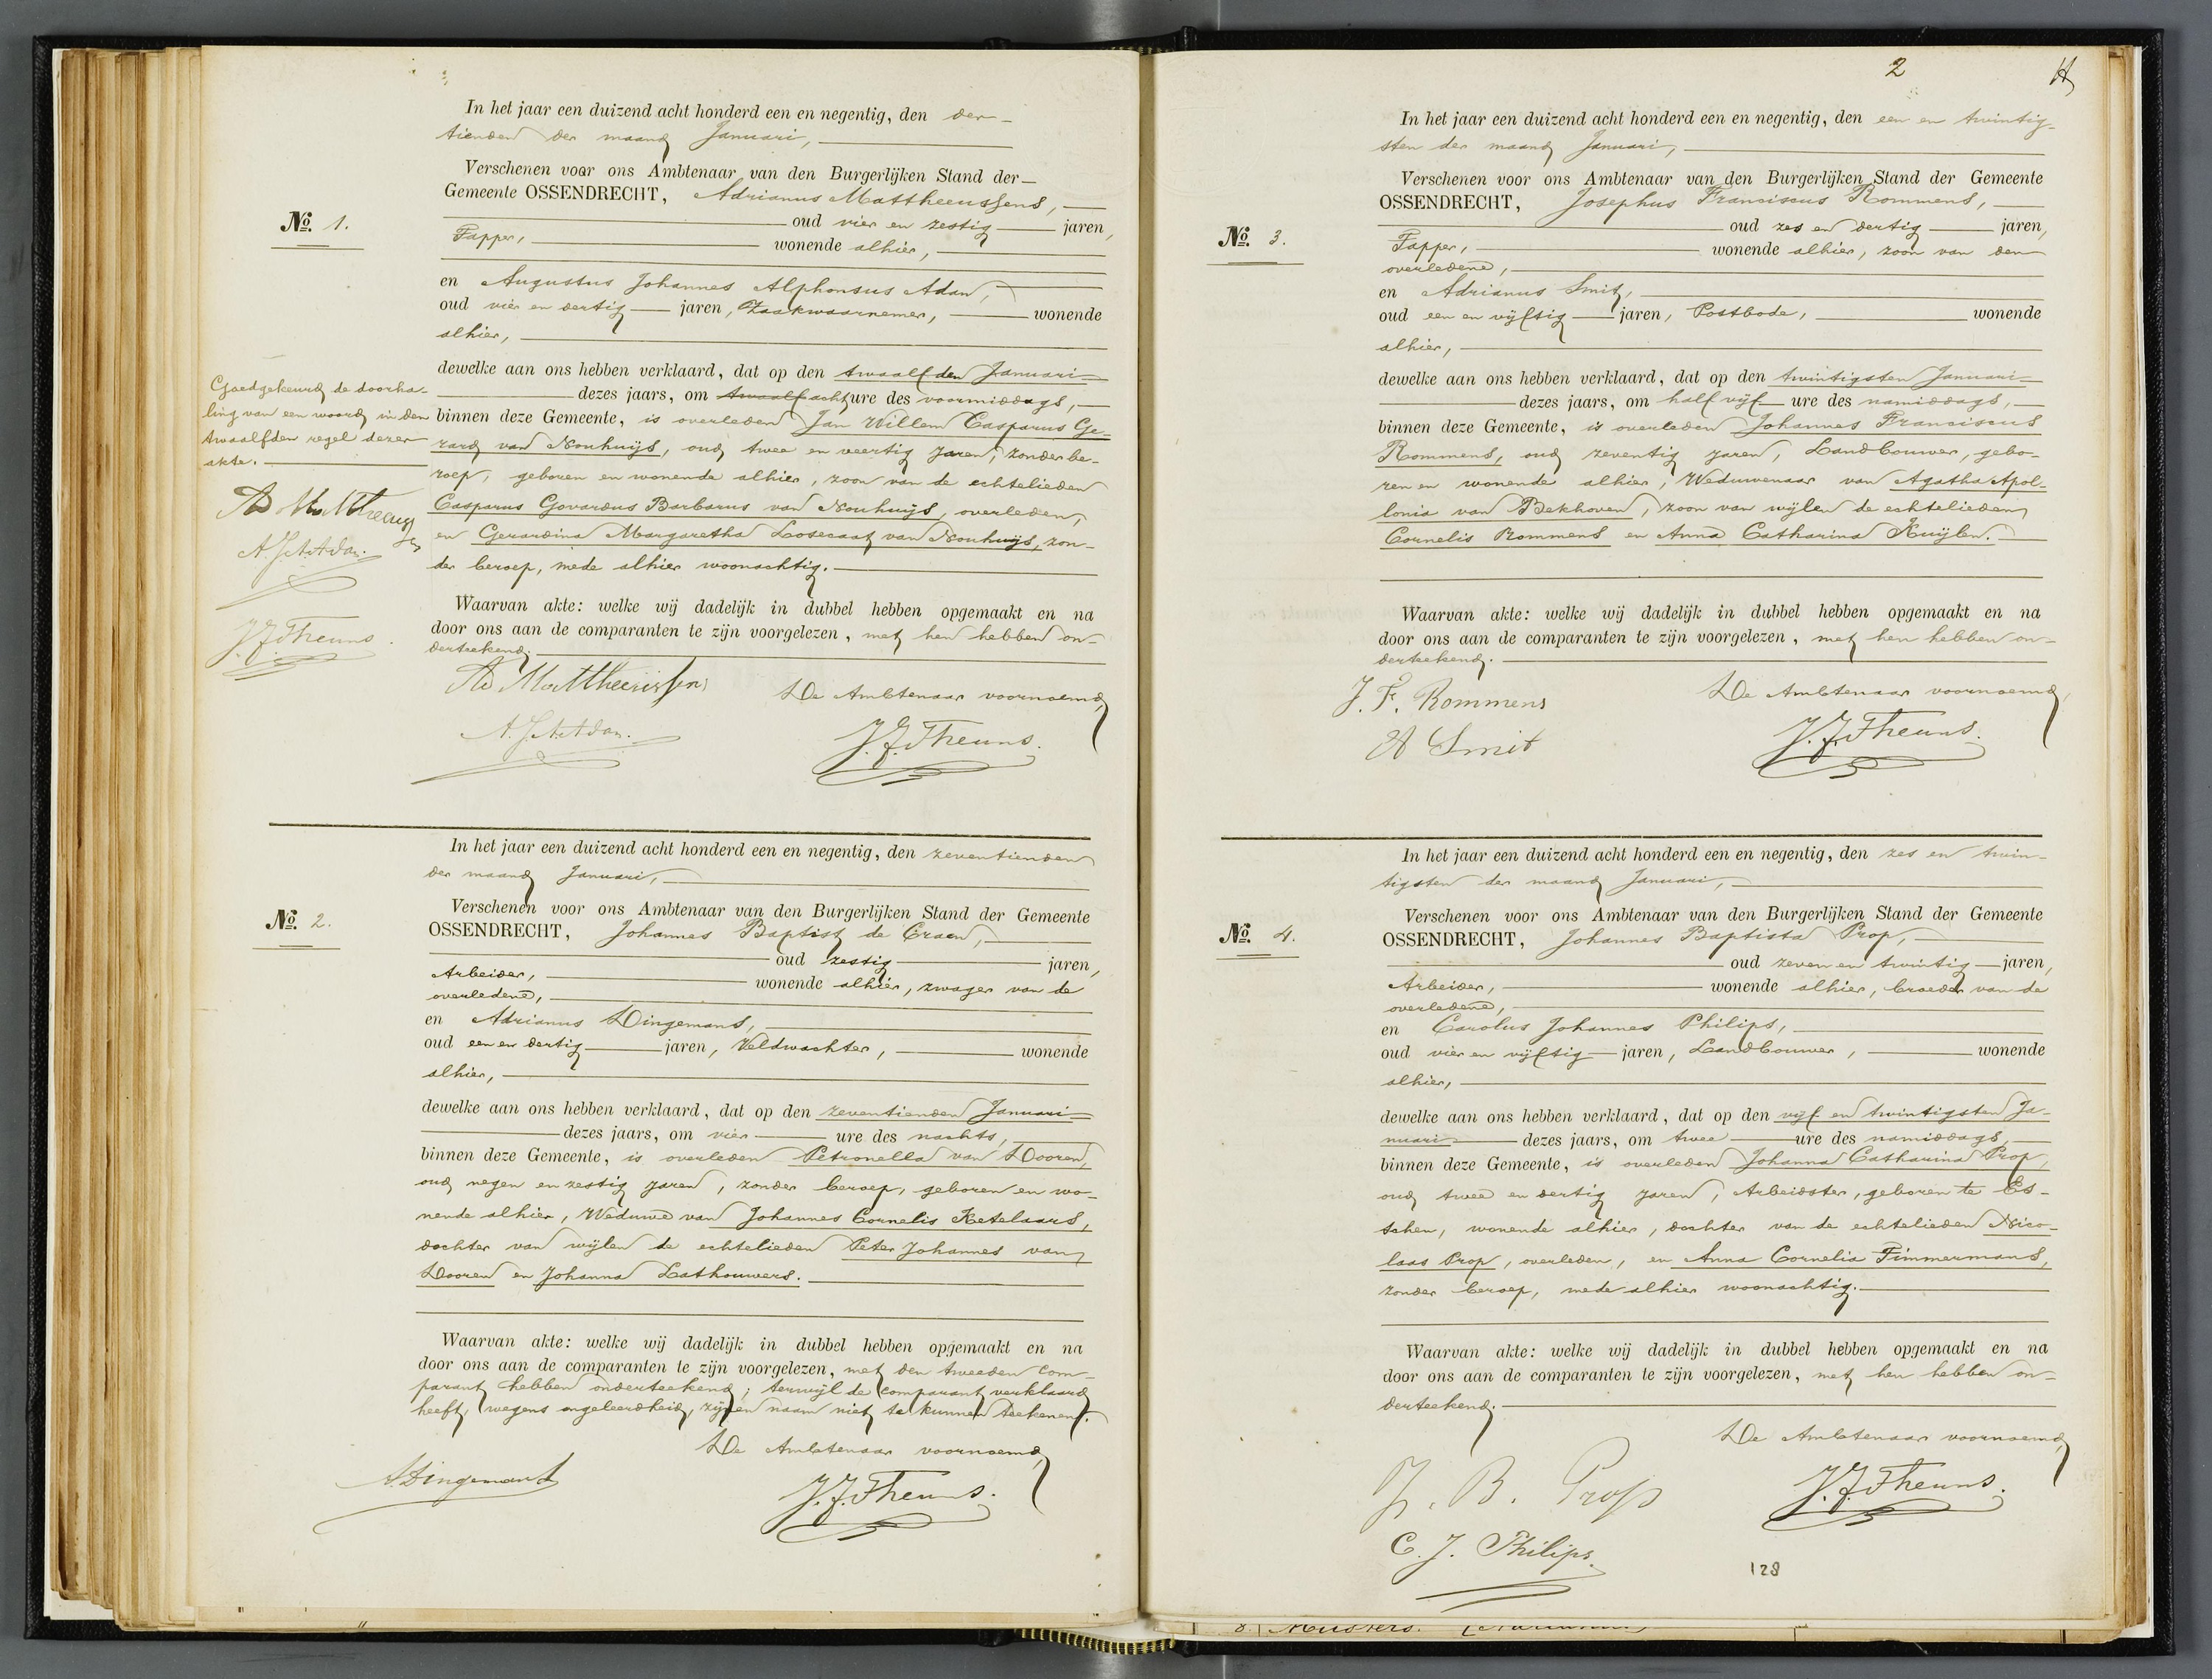 In het jaar een duizend acht honderd een en negentig, den der-
tienden der maand Januari,
Verschenen voor ons Ambtenaar van den Burgerlijken Stand der
Gemeente OSSENDRECHT, Adrianus Mattheeussens,
No. 1.
oud vier en zestig jaren,
Tapper, wonende alhier,
en Augustus Johannes Alphonsus Adan,
oud vier en dertig jaren, Zaakwaarnemer, wonende
alhier,
dewelke aan ons hebben verklaard, dat op den twaalfden Januari
dezes jaars, om twaalf acht ure des voormiddags,
binnen deze Gemeente, is overleden Jan Willem Casparus Ge-
rard van Nouhuijs, oud twee en veertig jaren, zonder be-
roep, geboren en wonende alhier, zoon van de echtelieden
Casparus Govardus Barbarus van Nouhuijs, overleden,
en Gerardina Margaretha Losecaat van Nouhuijs, zon-
der beroep, mede alhier woonachtig.
Goedgekeurd de doorha-
ling van een woord in den
twaalfden regel dezer
akte.
Ad Mattheeussens
A.J.A. Adan.
J.F. Theuns.
Waarvan akte: welke wij dadelijk in dubbel hebben opgemaakt en na
door ons aan de comparanten te zijn voorgelezen, met hen hebben on-
derteekend.
Ad Mattheeussens
De Ambtenaar voornoemd,
A.J.A. Adan.
J.F. Theuns.
In het jaar een duizend acht honderd een en negentig, den zeventienden
der maand Januari,
Verschenen voor ons Ambtenaar van den Burgerlijken Stand der Gemeente
No. 2.
OSSENDRECHT, Johannes Baptist de Craen,
oud zestig jaren,
Arbeider, wonende alhier, zwager van de
overledene,
en Adrianus Dingemans,
oud een en dertig jaren, Veldwachter, wonende
alhier,
dewelke aan ons hebben verklaard, dat op den zeventienden Januari
dezes jaars, om vier ure des nachts,
binnen deze Gemeente, is overleden Petronella van Dooren,
oud negen en zestig jaren, zonder beroep, geboren en wo-
nende alhier, Weduwe van Johannes Cornelis Ketelaars,
dochter van wijlen de echtelieden Peter Johannes van
Dooren en Johanna Lathouwers.
Waarvan akte: welke wij dadelijk in dubbel hebben opgemaakt en na
door ons aan de comparanten te zijn voorgelezen, met den tweeden com-
parant hebben onderteekend; terwijl de comparant verklaard
heeft, wegens ongeleerdheid, zijnen naam niet te kunnen teekenen.
De Ambtenaar voornoemd,
A. Dingemans
J.F. Theuns.
2
In het jaar een duizend acht honderd een en negentig, den een en twintig-
sten der maand Januari,
Verschenen voor ons Ambtenaar van den Burgerlijken Stand der Gemeente
OSSENDRECHT, Josephus Franciscus Rommens,
No. 3.
oud zes en dertig jaren,
Tapper, wonende alhier, zoon van den
overledene,
en Adrianus Smit,
oud een en vijftig jaren, Postbode, wonende
alhier,
dewelke aan ons hebben verklaard, dat op den twintigsten Januari
dezes jaars, om half vijf ure des namiddags,
binnen deze Gemeente, is overleden Johannes Franciscus
Rommens, oud zeventig jaren, Landbouwer, gebo-
ren en wonende alhier, Weduwenaar van Agatha Apol-
lonia van Bekhoven, zoon van wijlen de echtelieden
Cornelis Rommens en Anna Catharina Kuijlen.
Waarvan akte: welke wij dadelijk in dubbel hebben opgemaakt en na
door ons aan de comparanten te zijn voorgelezen, met hen hebben on-
derteekend.
J. F. Rommens
De Ambtenaar voornoemd,
A Smit
J.F. Theuns.
In het jaar een duizend acht honderd een en negentig, den zes en twin-
tigsten der maand Januari,
Verschenen voor ons Ambtenaar van den Burgerlijken Stand der Gemeente
No. 4.
OSSENDRECHT, Johannes Baptista Prop,
oud zeven en twintig jaren,
Arbeider, wonende alhier, broeder van de
overledene,
en Carolus Johannes Philips,
oud vier en vijftig jaren, Landbouwer, wonende
alhier,
dewelke aan ons hebben verklaard, dat op den vijf en twintigsten Ja-
nuari dezes jaars, om twee ure des namiddags,
binnen deze Gemeente, is overleden Johanna Catharina Prop,
oud twee en dertig jaren, Arbeidster, geboren te Es-
schen, wonende alhier, dochter van de echtelieden Nico-
laas Prop, overleden, en Anna Cornelia Timmermans,
zonder beroep, mede alhier woonachtig.
Waarvan akte: welke wij dadelijk in dubbel hebben opgemaakt en na
door ons aan de comparanten te zijn voorgelezen, met hen hebben on-
derteekend.
De Ambtenaar voornoemd,
J. B. Prop
J.F. Theuns.
C. J. Philips.
128